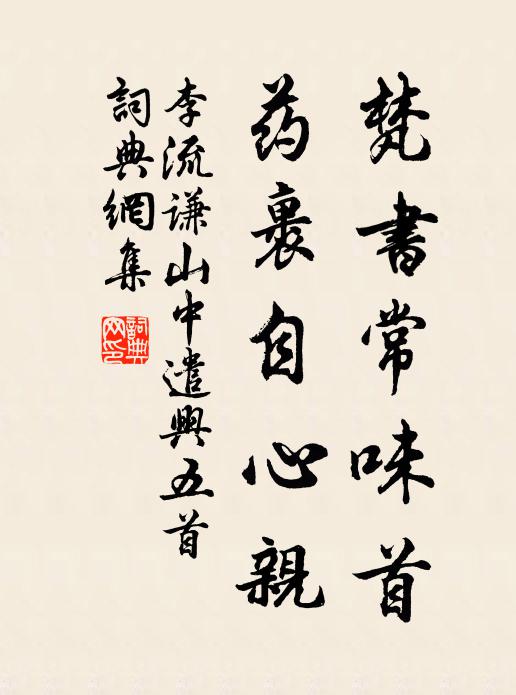 梵書常味首
药裹自心親
李流谦山中遣興五首
詞典網集
詞典网印